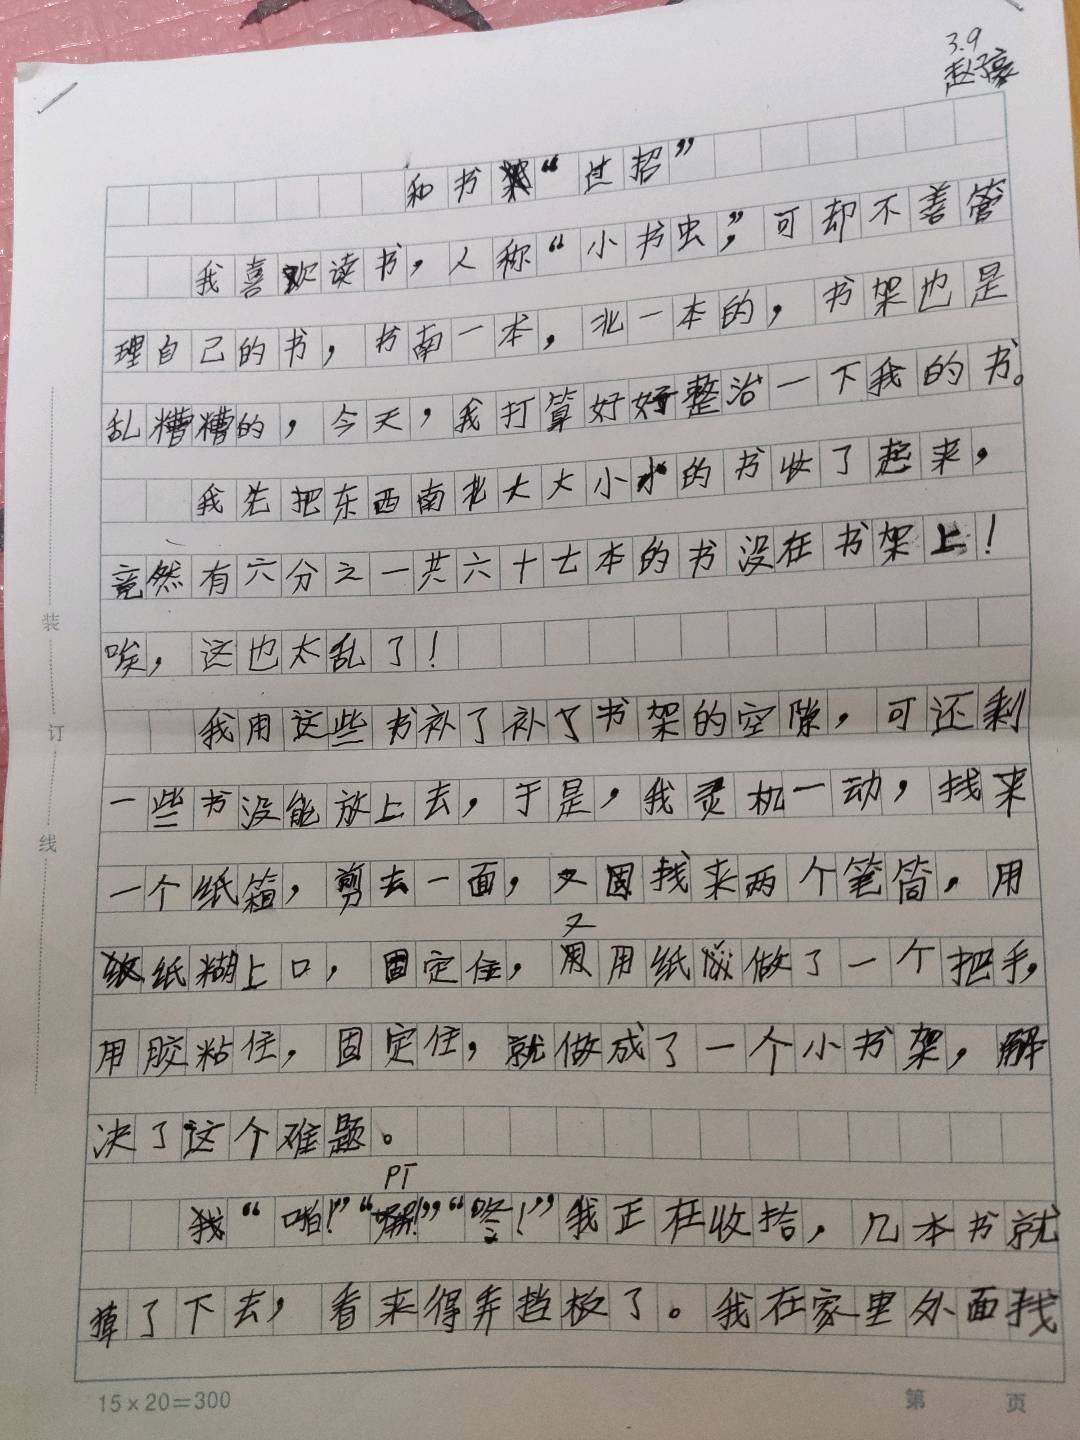 3.9
赵
和书“过招”
我喜欢读书，人称“小书虫”，可却不善管
理自己的书，书南一本，北一本的，书架也是
乱糟糟的，今天，我打算好好整治一下我的书。
我先把东西南北大大小小的书收了起来，
竟然有六分之一共六十七本的书没在书架上！
唉，这也太乱了！
我用这些书补了补了书架的空隙，可还剩
一些书没能放上去，于是，我灵机一动，找来
一个纸箱，剪去一面，又固找来两个笔筒，用
又
纸糊上口，固定住，用纸做了一个把手，
用胶粘住，固定住，就做成了一个小书架，解
决了这个难题。
PT
我“啪！”“”“咚！”我正在收拾，几本书就
掉了下去，看来得弄挡板了。我在家里外面找
装
订
线
15×20=300
第 页